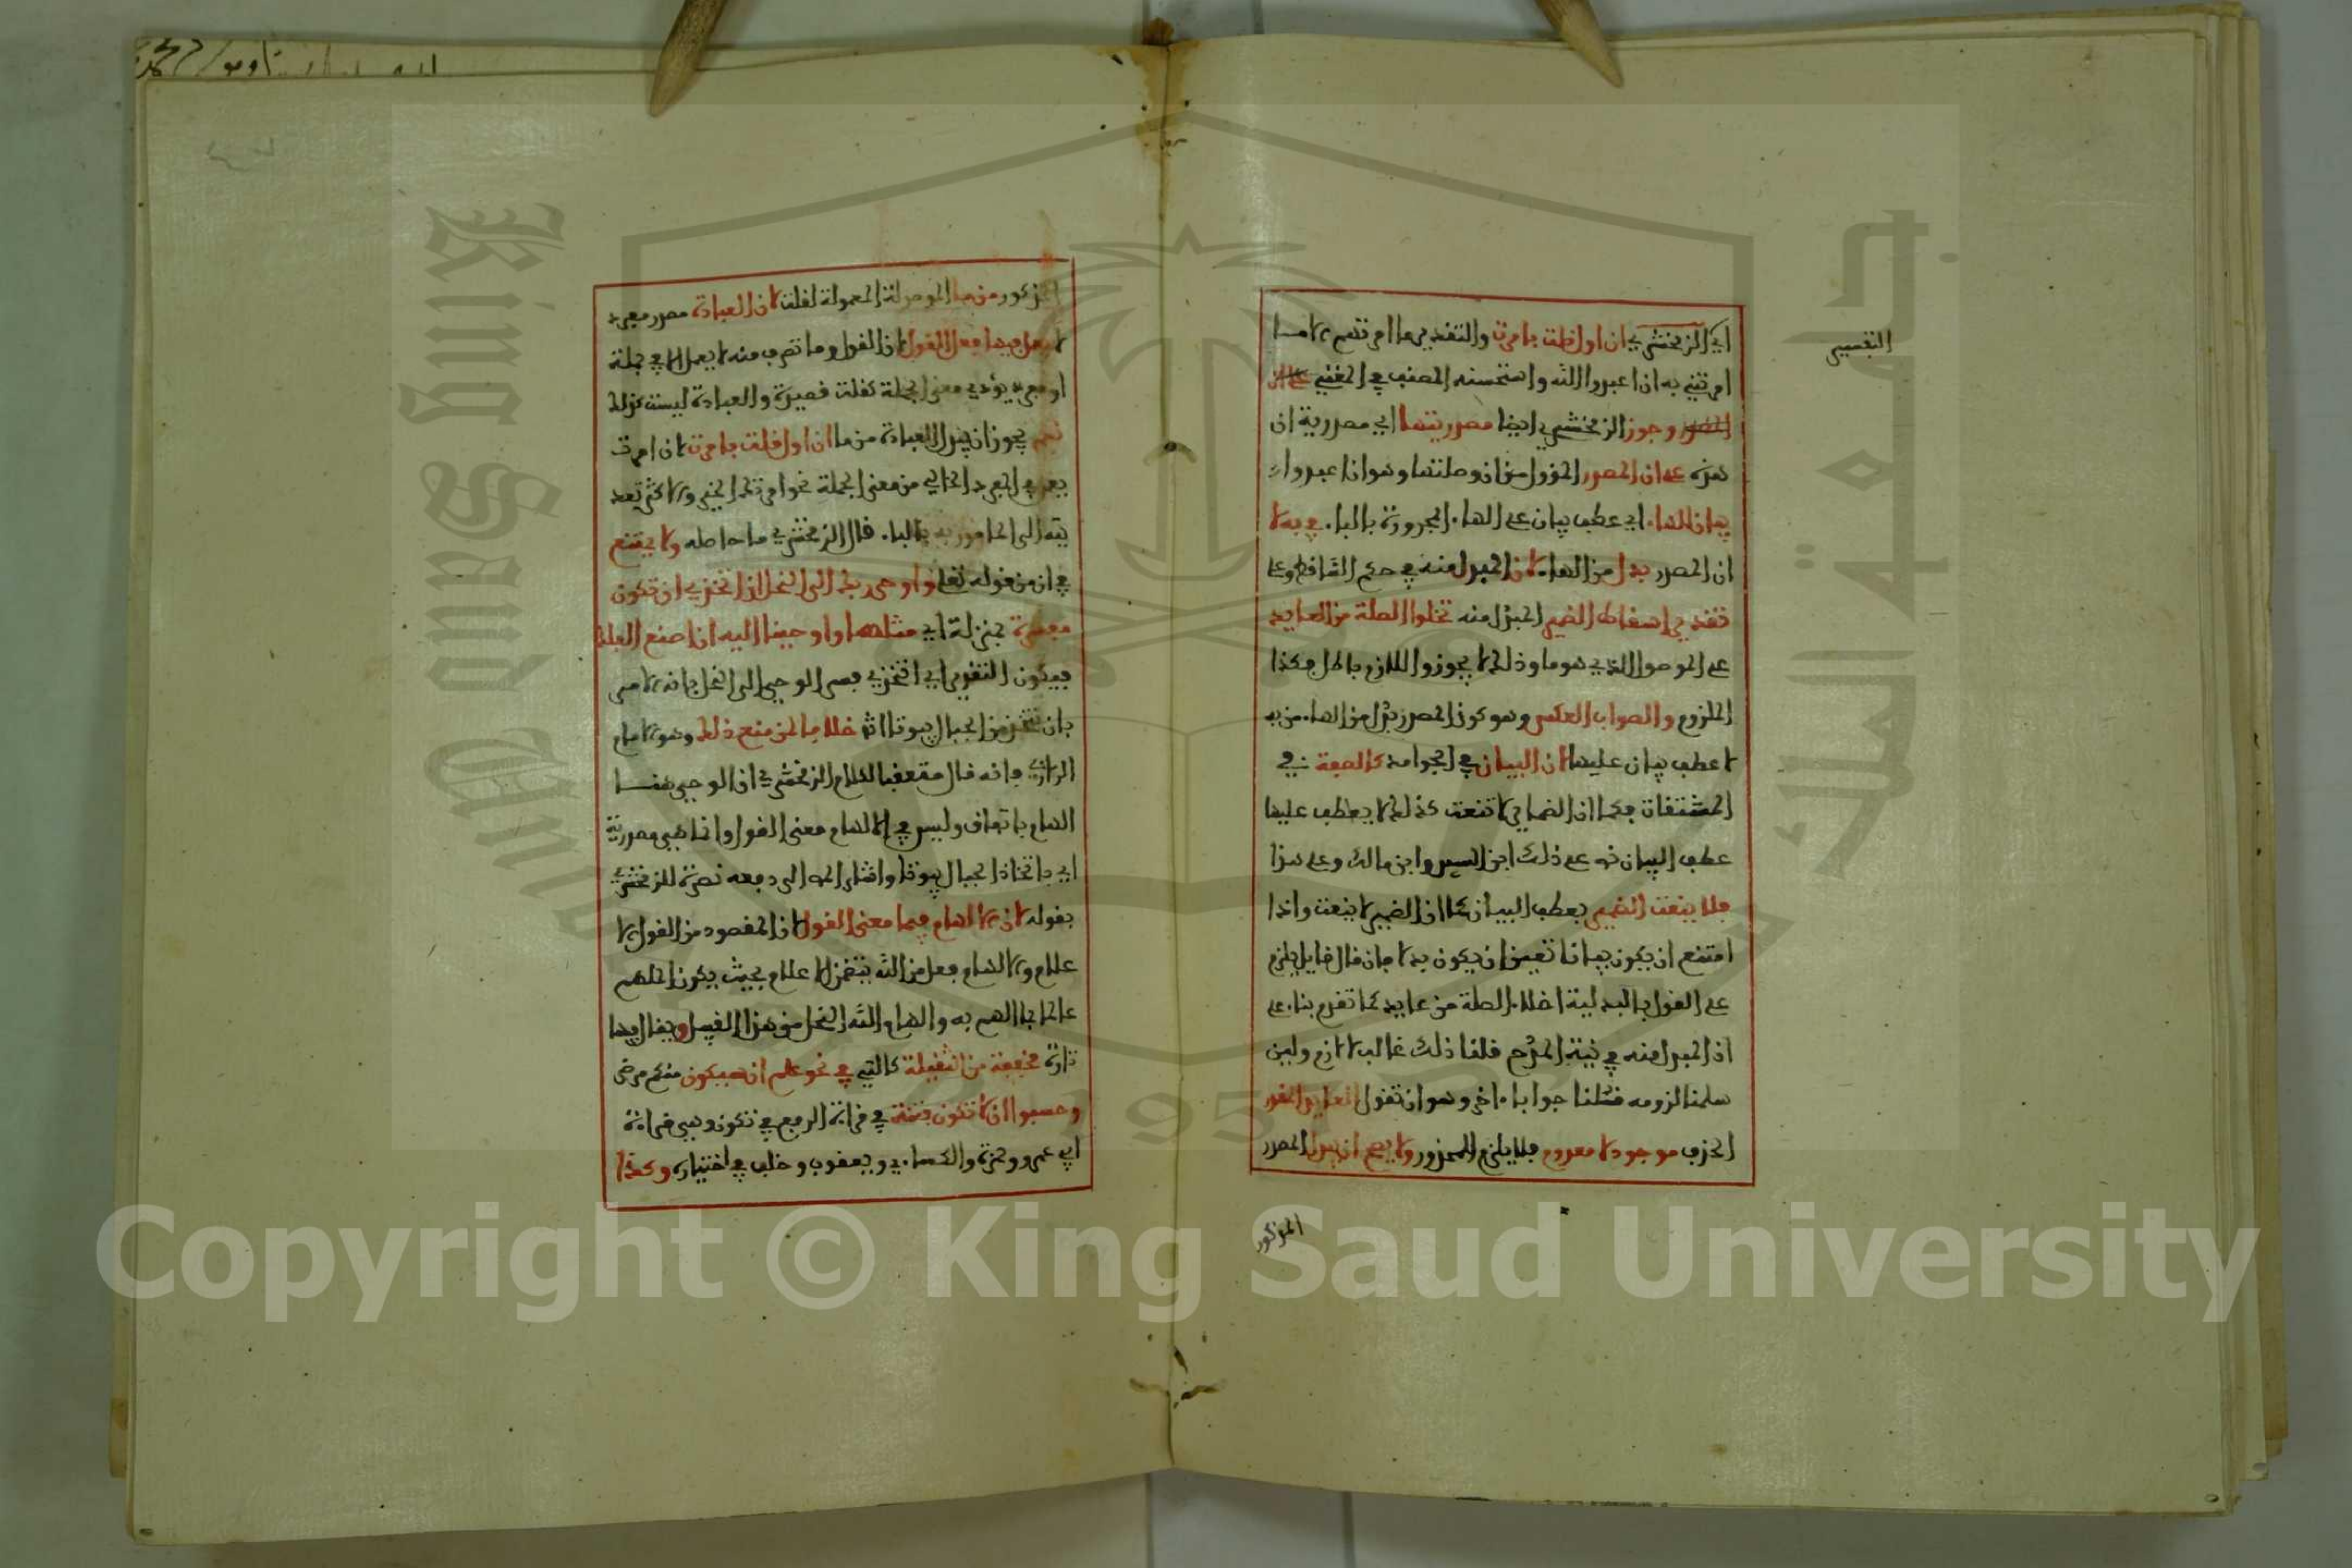 التفسير
اي الزمخشري ان اولت قلت بامرت والتقدير ما امرتهم الا ما
امرتني به ان اعبدوا الله واستحسنه المصنف في المغني
وجوز الزمخشري ايضا مصدريتها اي مصدرية ان
هذه على ان المصدر المؤول من ان وصلتها وهو ان اعبدوا
بيان للهاء اي عطف بيان على الهاء المجرورة بالباء في به لا
ان المصدر بدل من الهاء لان المبدل منه في حكم الساقط وعلى
تقدير اسقاط الضمير المبدل منه تخلوا الصلة من العايد
على الموصول الذي هو ما وذلك لا يجوز واللازم باطل فكذا
الملزوم والصواب العكس وهو كون المصدر بدل من الهاء من به
لا عطف بيان عليها لان البيان في الجوامد كالصفة في
المشتقات فكما ان الضماير لا تنعت كذلك لا يعطف عليها
عطف البيان نص على ذلك ابن السيد وابن مالك وعلى هذا
فلا يتبعت الضمير بعطف البيان كما ان الضمير لا ينعت واذا
امتنع ان يكون بيانا تعين ان يكون بدلا فان قال قايل يلزم
على القول بالبدلية اخلاء الصلة من عايد كما تقدم بناء على
ان المبدل منه في نية الطرح قلنا ذلك غالب لا لازم ولين
سلمنا لزومه فقلنا جوابا اخر وهو ان نقول العايد المقدر
الحذف موجود لا معدوم فلا يلزم المحذور ولا يصح ان يبدل المصدر
المذكور
المذكور من ما الموصولة المعمولة لقلت لان العبادة مصدر مفرد
لا يعمل فيها فعل القول لان القول وما تصرف منه لا يعمل الا في جملة
او مفرد يؤدي معنى الجملة كقلت قصيدة والعبادة ليست كذلك
نعم يجوز ان يبدل العبادة من ما ان اولت قلت بامرت لان امرت
يعمل في المفرد الخالي من معنى الجملة نحو امرتك الخير والاكثر تعد
يته الى المامور به بالباء قال الزمخشري ما حاصله ولا يمتنع
في ان من قوله تعلى واوحى ربك الى النحل ان اتخذي ان تكون
مفسرة بمنزلة اي مثلها واوحينا اليه ان اصنع الفلك
فيكون التقدير اي اتخذي فسر الوحي الى النحل بانه الامر
بان تتخذ من الجبال بيوتا اه خلافا لمن منع ذلك وهو الامام
الرازي فانه قال متعقبا لكلام الزمخشري ان الوحي هنا
الهام باتفاق وليس في الالهام معنى القول وانما هي مصدرية
اي باتخاذ الجبال بيوتا واشار الى دفعه نصرة للزمخشري
بقوله لان الالهام فيها معنى القول لان المقصود من القول الا
علام والالهام فعل من الله يتضمن الاعلام بحيث يكون الملهم
عالما بما الهم به والهام الله النحل من هذا القبيل ويقال فيها
تارة مخففة من الثقيلة كالتي في نحو علم ان سيكون منكم مرضى
وحسبوا ان لا تكون فتنة في قراءة الرفع في تكون وهي قراءة
ابي عمرو وحمزة والكساءي ويعقوب وخلف في اختياره وكذا
Copyright © King Saud University